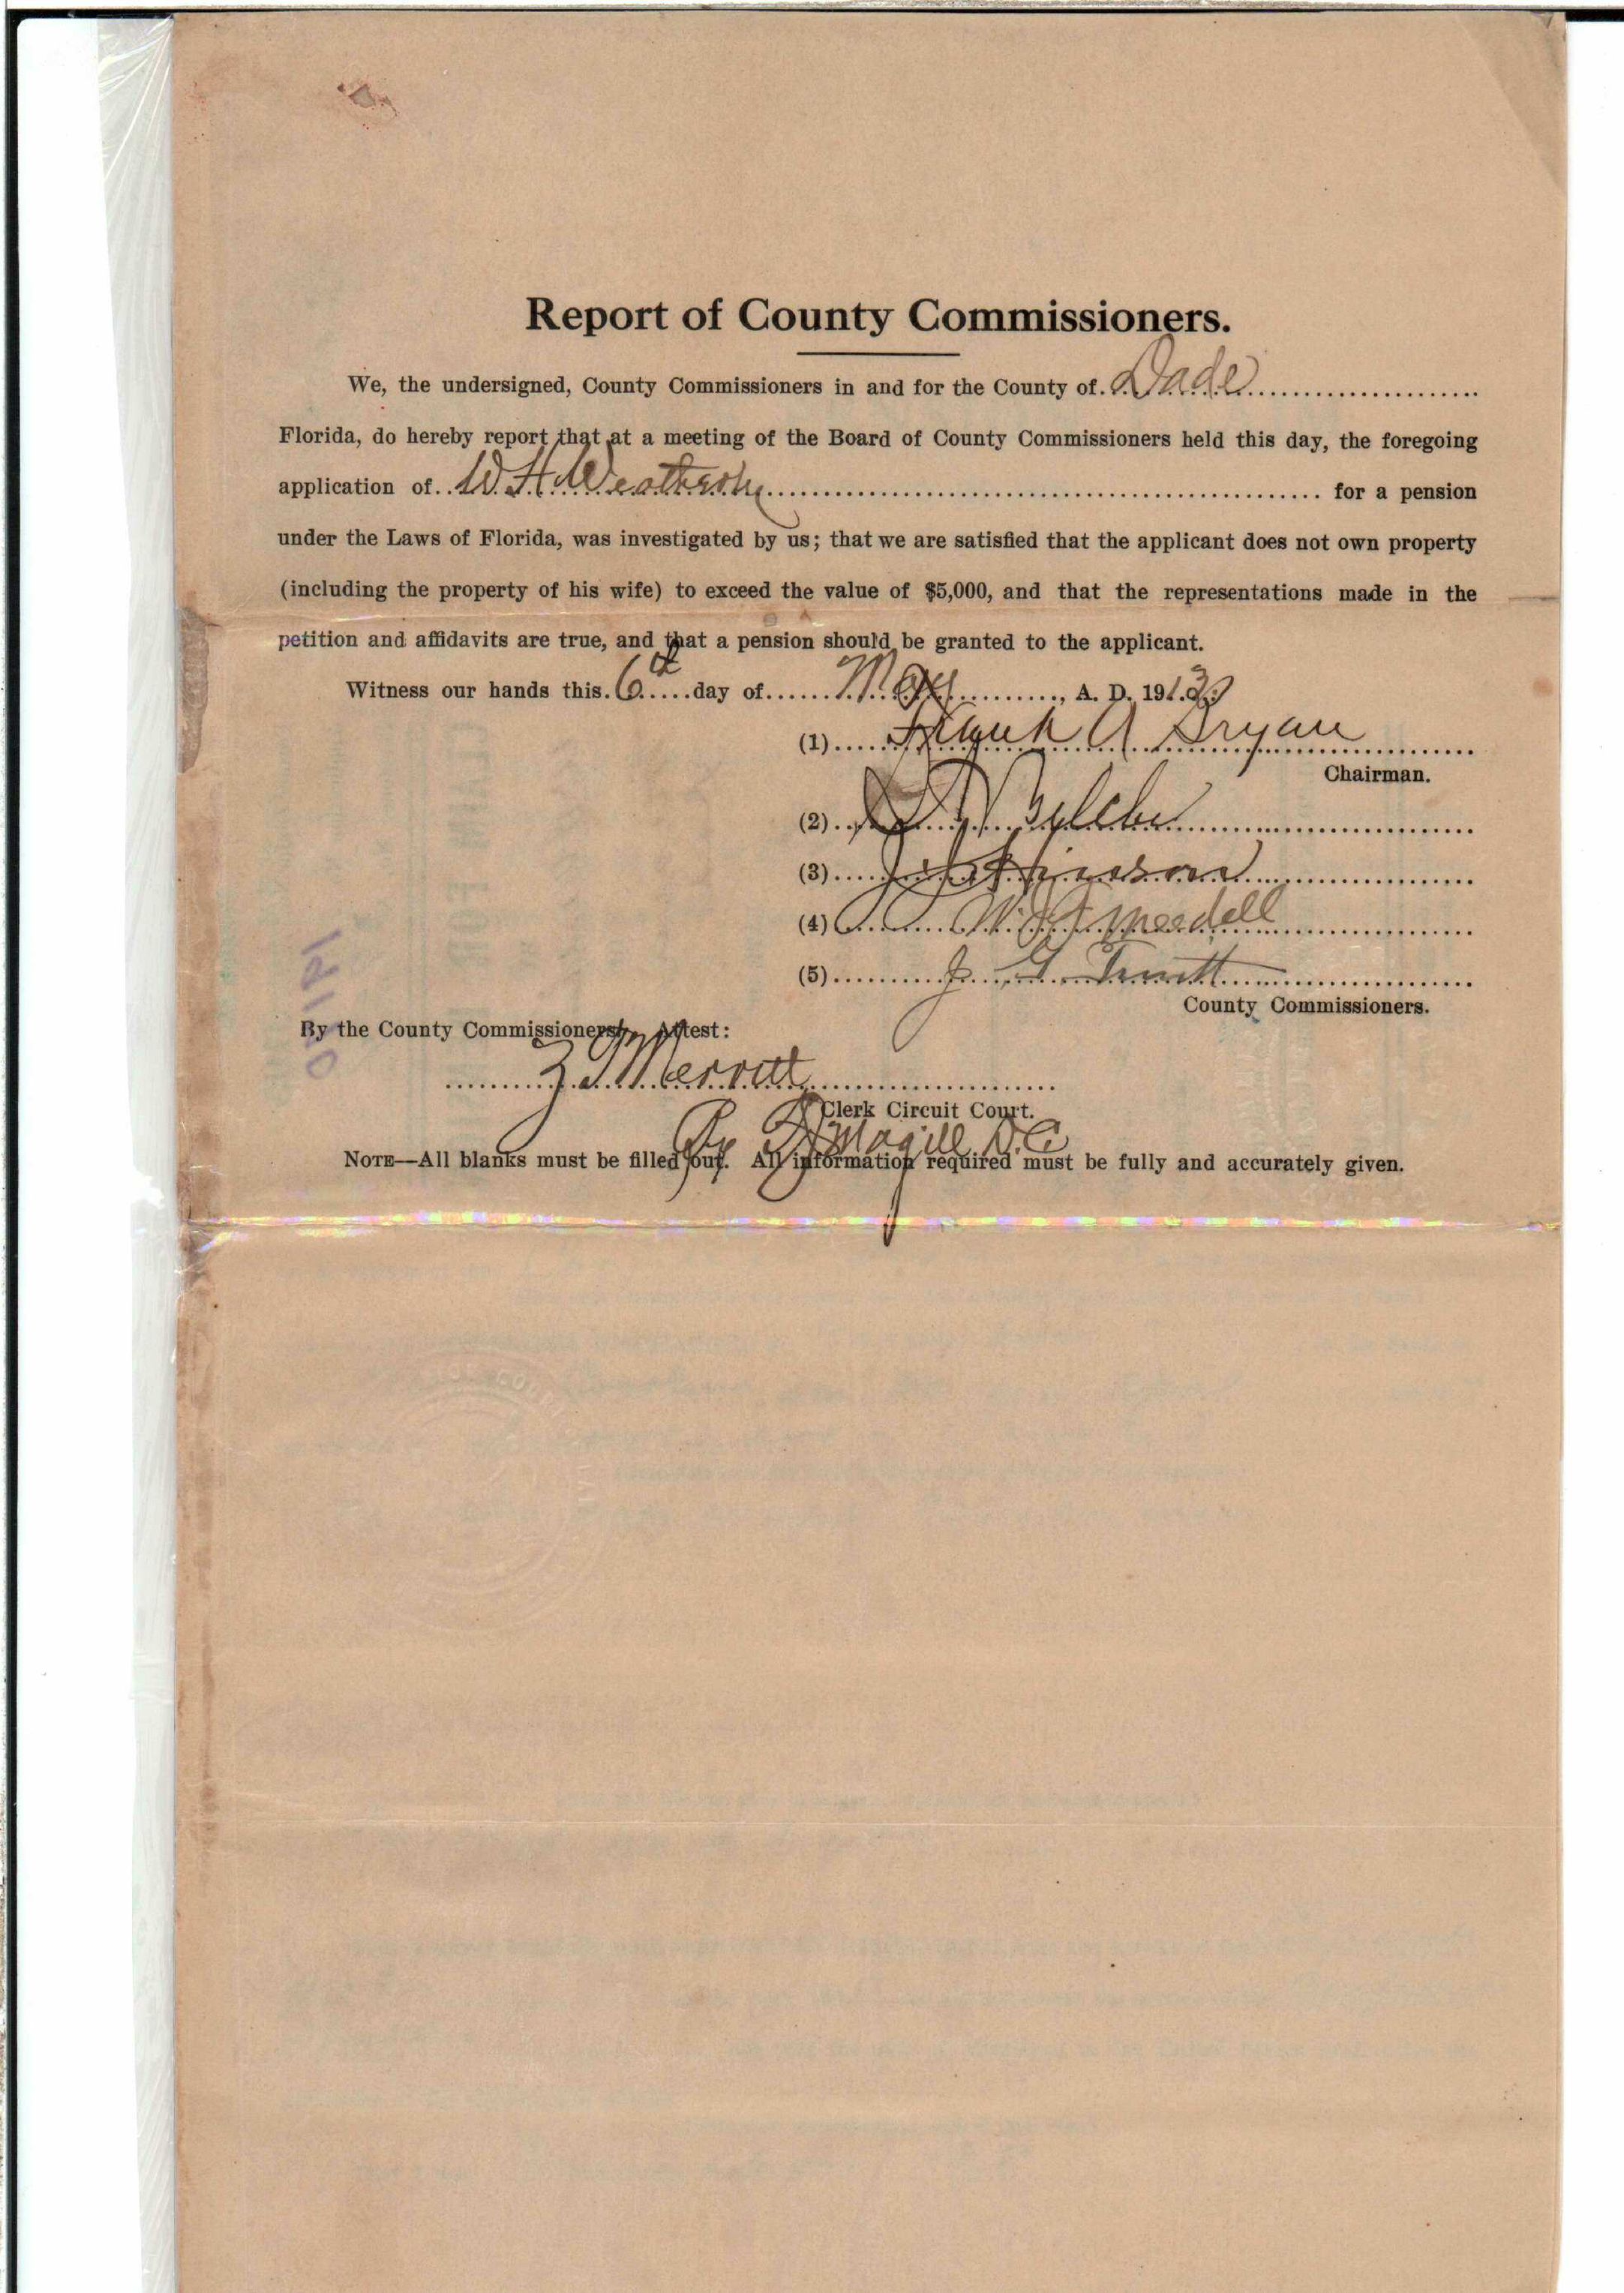 Report of County Commissioners.
We, the undersigned, County Commissioners in and for the County of Dade
Florida, do hereby report that at a meeting of the Board of County Commissioners held this day, the foregoing
application of W. H. Weatherly for a pension
under the Laws of Florida, was investigated by us; that we are satisfied that the applicant does not own property
(including the property of his wife) to exceed the value of $5,000, and that the representations made in the
petition and affidavits are true, and that a pension should be granted to the applicant.
Witness our hands this 6th day of May, A. D. 1913
(1) Frank A Bryan
Chairman.
(2)
(3) Hinson
(4)
(5) J. G. Truitt
County Commissioners.
By the County Commissioners. Attest:
Z T Merritt
Clerk Circuit Court.
By Magill D.C.
NOTE—All blanks must be filled out. All information required must be fully and accurately given.